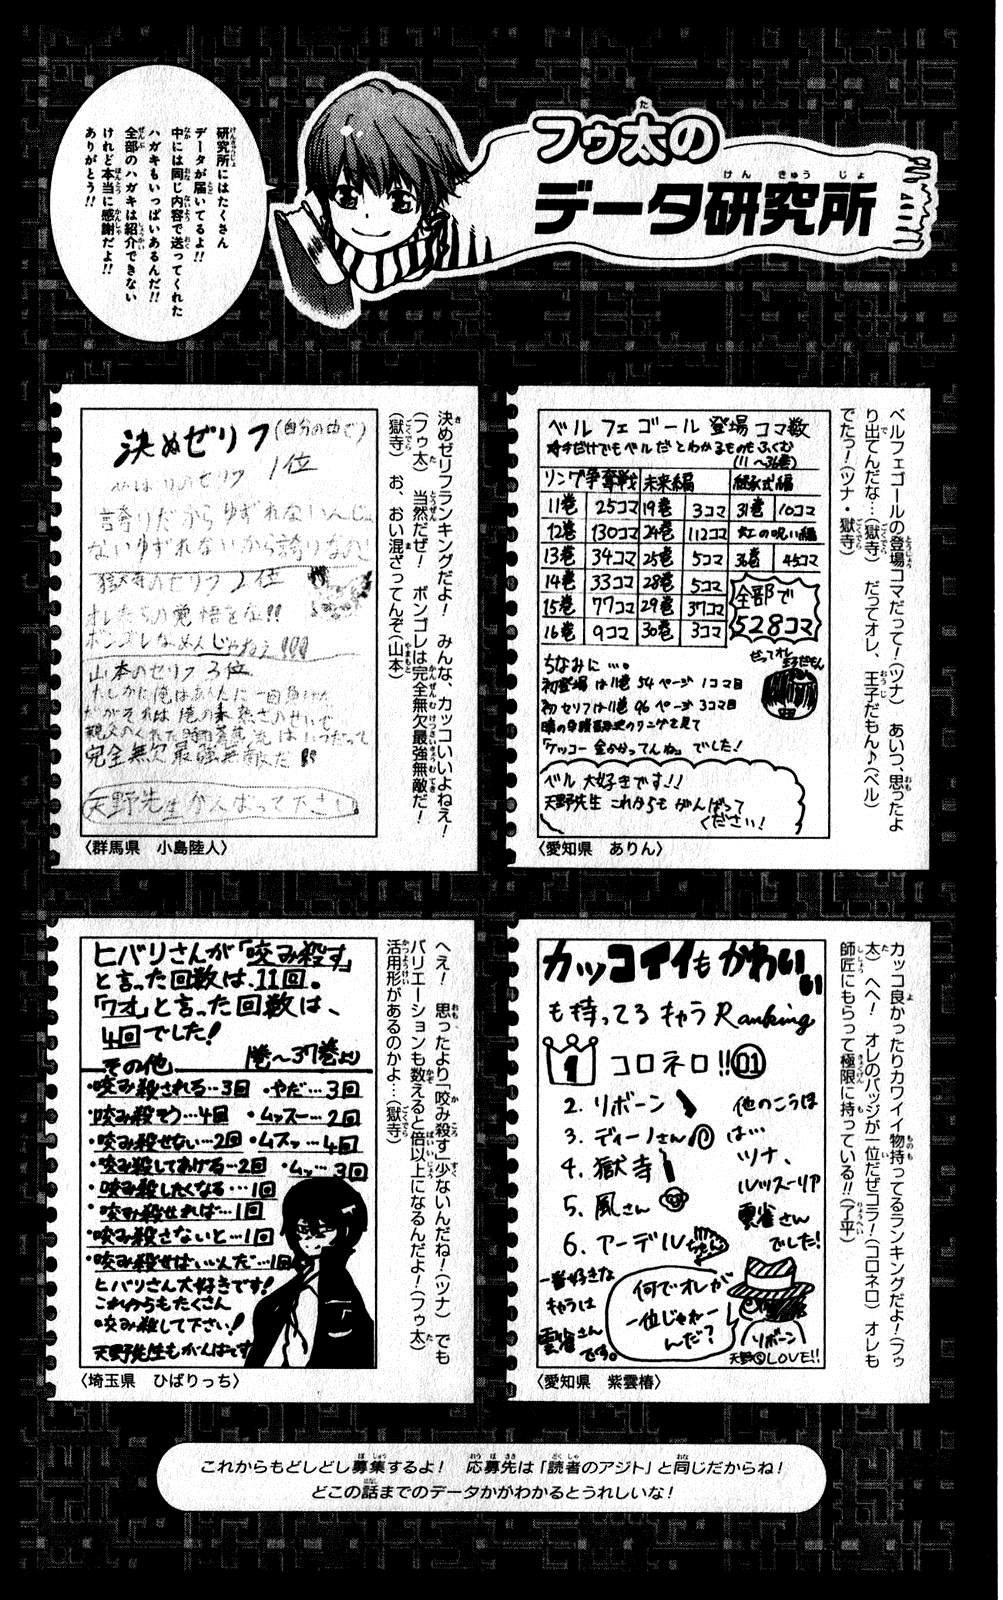 フゥ太の
データ研究所
研究所にはたくさん
データが届いてるよ!!
中には同じ内容で送ってくれた
ハガキもいっぱいあるんだ!!
全部のハガキは紹介できない
けれど本当に感謝だよ!!
ありがとう!!
ベルフェゴールの登場コマだって!(ツナ) あいつ、思ったよ
り出てんだな…(獄寺) だってオレ、王子だもん♪(ベル)
でたっ!(ツナ・獄寺)
ベルフェゴール登場コマ数
(11〜36巻)
リング争奪戦 未来編 継承式編
11巻 25コマ 19巻 3コマ 31巻 10コマ
12巻 130コマ 24巻 112コマ 虹の呪い編
13巻 34コマ 25巻 5コマ 36巻 45コマ
14巻 33コマ 28巻 5コマ
15巻 77コマ 29巻 37コマ
16巻 9コマ 30巻 3コマ
全部で
528コマ
だってオレ
王子だもん
ちなみに…。
初登場は11巻 54ページ 1コマ目
初セリフは11巻 96ページ 3コマ目
「ケッコー金かかってんね」でした!
ベル大好きです!!
天野先生 これからもがんばって
ください!
〈愛知県 ありん〉
決めゼリフランキングだよ! みんな、カッコいいよねえ!
(フゥ太) 当然だぜ! ボンゴレは完全無欠最強無敵だ!
(獄寺) お、おい混ざってんぞ(山本)
決めゼリフ(自分の中で)
1位
誇りだからゆずれないんじゃ
ないゆずれないから誇りなの!
獄寺のゼリフ 2位
オレたちの覚悟をな!!
ボンゴレなめんじゃねえ!!!
山本のゼリフ 3位
たしかに俺はあんたに一回負けた
だがそれは俺の未熟さのせいで
完全無欠最強無敵だ!!
天野先生がんばって下さい
〈群馬県 小島陸人〉
カッコ良かったりカワイイ物持ってるランキングだよ!(フゥ
太) へへ! オレのバッジが一位だぜコラ!(コロネロ) オレも
師匠にもらって極限に持っている!!(了平)
カッコイイもかわいい
も持ってるキャラRanking
1 コロネロ!! 01
2. リボーン
3. ディーノさん
4. 獄寺
5. 風さん
6. アーデル
他のこうほ
は…
ツナ、
ルッスーリア
雲雀さん
でした!
一番好きな
キャラは
雲雀さん
です。
何でオレが
一位じゃねー
んだ?
リボーン
LOVE!!
〈愛知県 紫雲椿〉
へえ! 思ったより「咬み殺す」少ないんだね!(ツナ) でも
バリエーションも数えると倍以上になるんだよ!(フゥ太)
活用形があるのかよ…(獄寺)
ヒバリさんが「咬み殺す」
と言った回数は、11回。
「ワオ」と言った回数は、
4回でした!
1巻〜37巻より
その他
・咬み殺される…3回 ・やだ…3回
・咬み殺そう…4回 ・ムッスー…2回
・咬み殺せない…2回 ・ムスッ…4回
・咬み殺してあげる…2回 ・ムッ…3回
・咬み殺したくなる…1回
・咬み殺せれば…1回
・咬み殺さないと…1回
・咬み殺せばいいんだ…1回
ヒバリさん大好きです!
これからもたくさん
咬み殺して下さい!
天野先生もがんばです
〈埼玉県 ひばりっち〉
これからもどしどし募集するよ! 応募先は「読者のアジト」と同じだからね!
どこの話までのデータかがわかるとうれしいな!